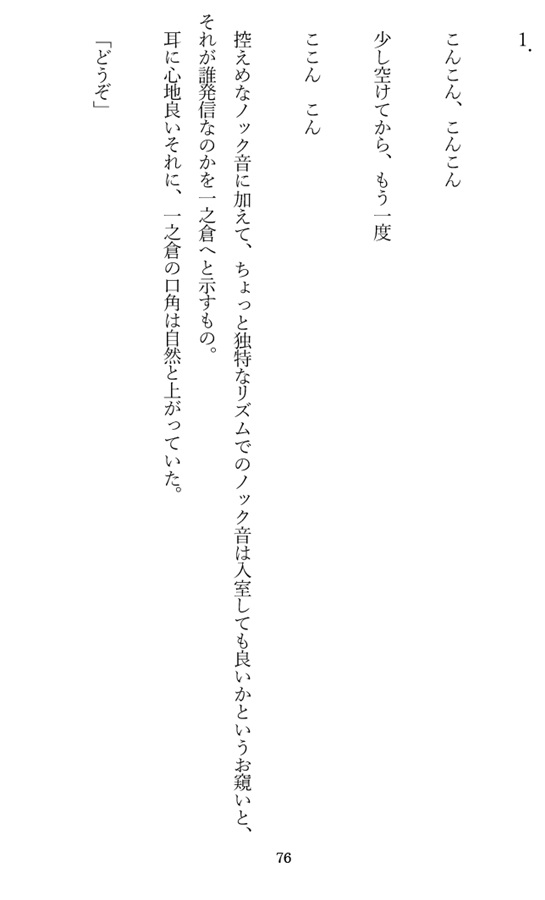 1.
こんこん、こんこん
少し空けてから、もう一度
ここん　こん
控えめなノック音に加えて、ちょっと独特なリズムでのノック音は入室しても良いかというお窺いと、
それが誰発信なのかを一之倉へと示すもの。
耳に心地良いそれに、一之倉の口角は自然と上がっていた。
「どうぞ」
76